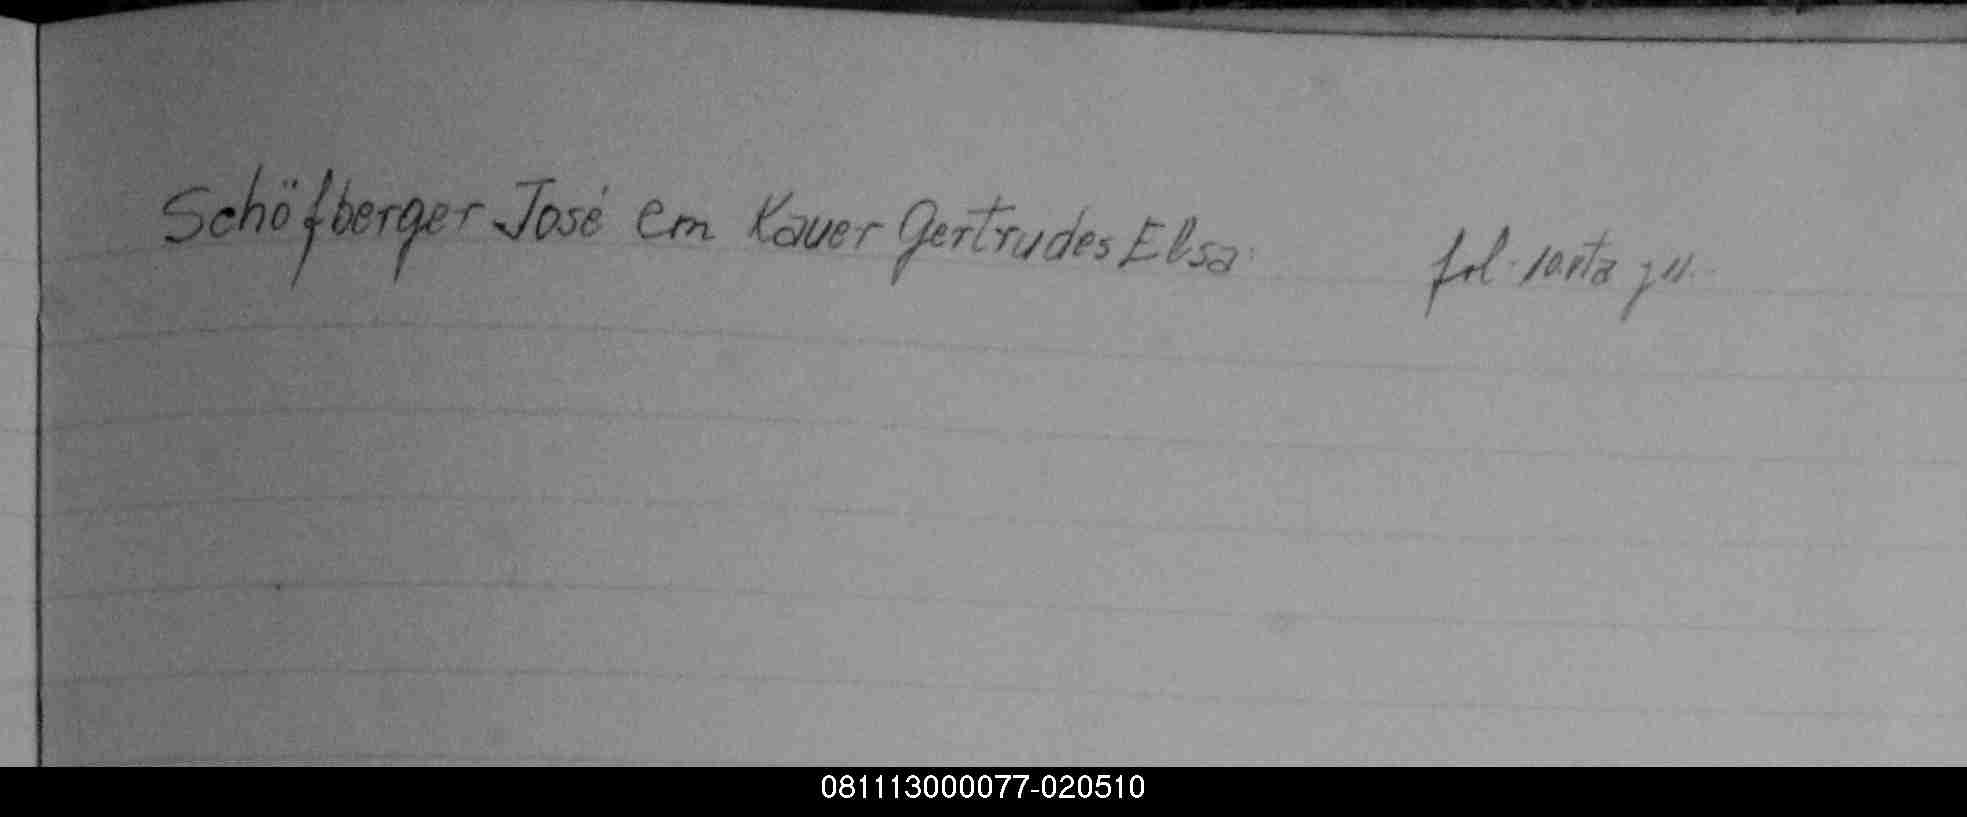 Schöfberger José em Kauer Gertrudes Elsa. fol. 10.vta y 11.
081113000077-020510